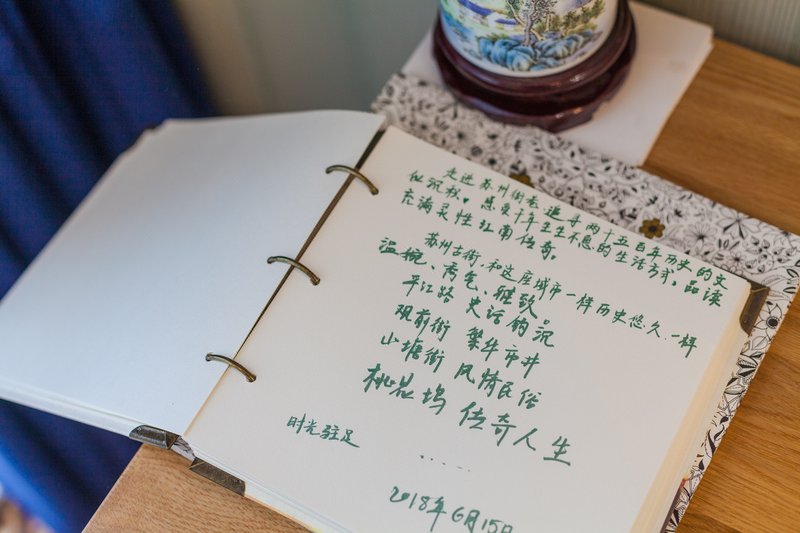 走进苏州街巷,追寻两千五百年历史的文
化沉积。感受千年生生不息的生活方式。品读
充满灵性江南传奇。
苏州古街,和这座城市一样历史悠久、一样
温婉、秀气、雅致
平江路 史话钩沉
观前街 繁华市井
山塘街 风情民俗
桃花坞 传奇人生
......
时光驻足
2018年6月15日